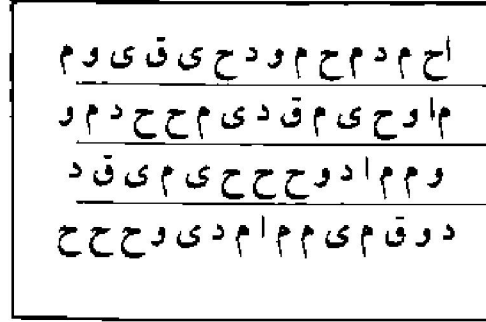 ا ح م د م ح م و د ح ی ق ی و م
م ا و ح ی م ق د ی م ح ح د م و
و م م ا د و ح ح ح ی م ی ق د
د و ق م ی م م ا م د ی و ح ح ح